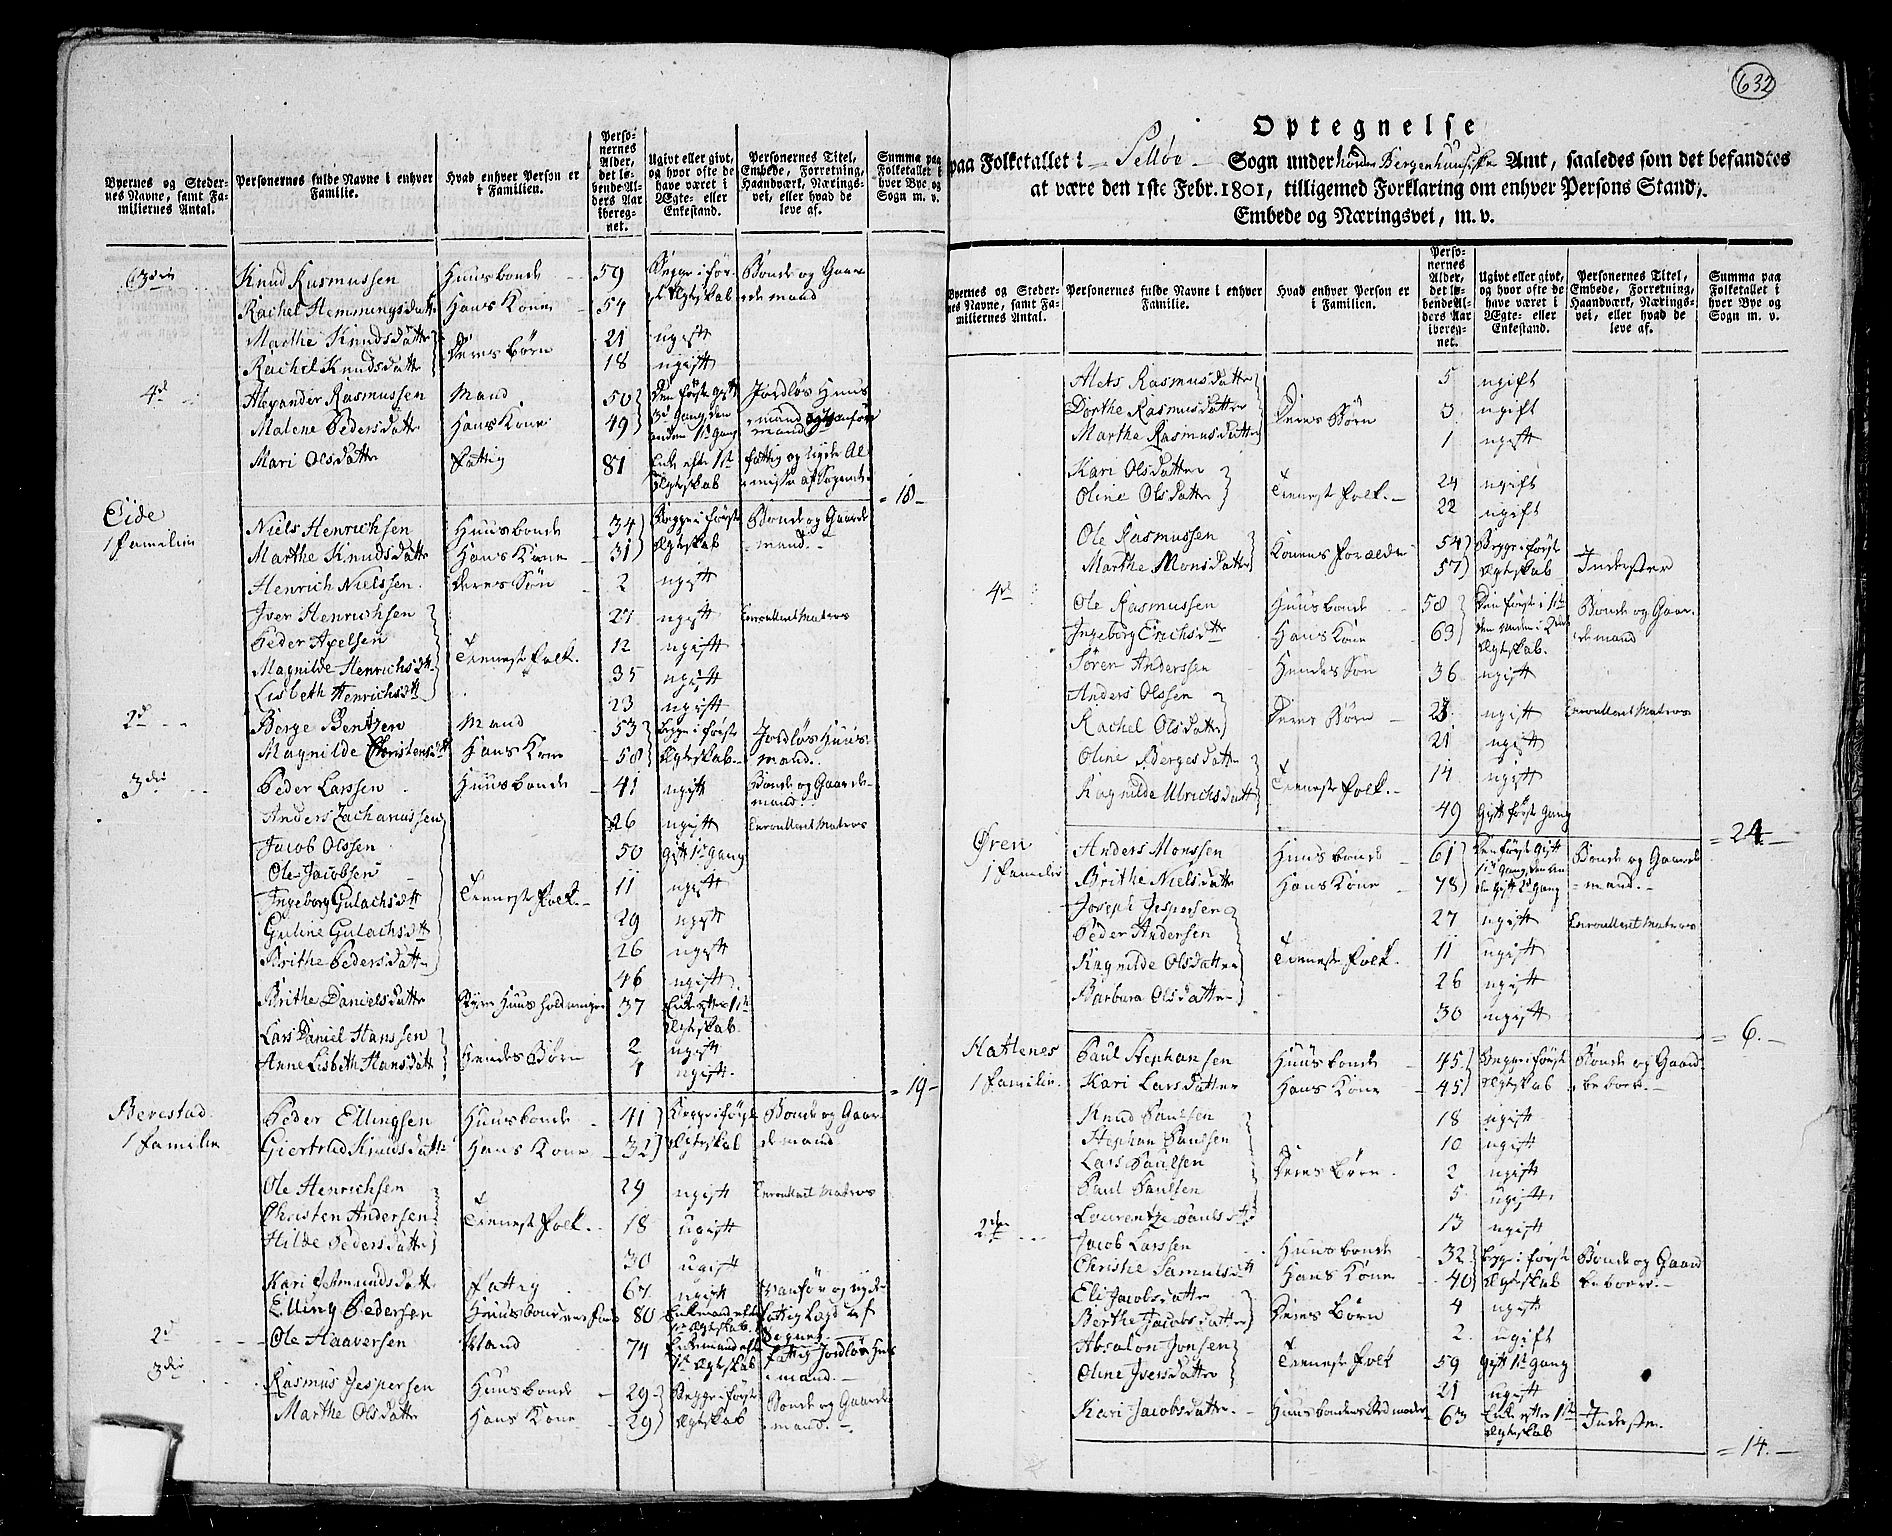 Byernes og Stedernes Navne, samt Familiernes Antal.
Personernes fulde Navne i enhver Familie.
Hvad enhver Person er i Familien.
Personernes Alder, det løbende Alders Aar iberegnet.
Ugivt eller givt, og hvor ofte de have været i Ægte- eller Enkestand.
Personernes Titel, Embede, Forretning, Haandværk, Næringsvei, eller hvad de leve af.
Summa paa Folketallet i hver Bye og Sogn m. v.
Knud Rasmussen Huusbonde 59 Begge i før- Bonde og Gaar
Rachel Hemmingsdatt. Hans Kone 54 ste Ægteskab demand
Marthe Knudsdatter Deres børn 21 ugift
Rachel Knudsdatter 18 ugift
4de Alexander Rasmussen Mand 50 Den første gift Jordløs Huus
Malene Pedersdatter Hans Kone 49
Mari Olsdatter Fattig 81 Enke efter 1ste Ægteskab
= 18 -
Eide
1 Familie
Niels Henrichsen Huusbonde 34 Begge i første Bonde og Gaarde
Marthe Knudsdatter Hans Kone 31 Ægteskab mand.
Henrich Nielssen Deres Søn 2 ugift
Iver Henrichsen 27 ugift Enroulleret Matros
Peder Axelsen 12 ugift
Magnilde Henrichsdtt Tieneste folk. 35 ugift
Lisbeth Henrichsdtt 23 ugift
2d Børge Bentzen Mand 53 begge i første Jordløs Huus
Magnilde Christensdtt Hans Kone 58 Ægteskab mand.
3die Peder Larssen Huusbonde 41 ugift Bonde og Gaardemand
Anders Zachariassen 26 ugift Enroulleret Matros
Jacob Olssen 50 Gift 1ste Gang
Ole Jacobsen 11 ugift
Ingeborg Gulachsdtt Tieneste folk. 29 ugift
Guline Gulachsdtt 26 ugift
Brithe Pedersdatter 46 ugift
Brithe Danielsdatter 37 Enke efter 1ste Ægteskab
Lars Daniel Hanssen Hendes Børn 2 ugift
Anne Lisbeth Hansdatt 4 ugift.
= 19 -
Bevestad
1 Familie
Peder Ellingsen Huusbonde 41 Begge i første Bonde og Gaar
Giertrud Knudsdatter Hans Kone 32 Ægteskab demand
Ole Henrichsen 29 ugift Enroulleret Matros
Christen Andersen Tieneste folk. 18 ugift
Hilde Pedersdatter 30 ugift
Kari Asmundsdatter fattig 67 ugift
Elling Pedersen 80
2d Ole Haaversen Mand 74
3die Rasmus Jespersen Huusbonde 29 Begge i første Bonde og Gaarde
Marthe Olsdatter Hans Kone 29 Ægteskab mand.
632
Optegnelse
paa Folketallet i Selløe Sogn under Nordre Bergenhuusiske Amt, saaledes som det befandtes
at være den 1ste Febr. 1801, tilligemed Forklaring om enhver Persons Stand,
Embede og Næringsvei, m. v.
Byernes og Stedernes Navne, samt Familiernes Antal.
Personernes fulde Navne i enhver Familie.
Hvad enhver Person er i Familien.
Personernes Alder, det løbende Alders Aar iberegnet.
Ugivt eller givt, og hvor ofte de have været i Ægte- eller Enkestand.
Personernes Titel, Embede, Forretning, Haandværk, Næringsvei, eller hvad de leve af.
Summa paa Folketallet i hver Bye og Sogn m. v.
Alets Rasmusdatter 5 ugift
Dorthe Rasmusdatter Deres Børn 3 ugift
Marthe Rasmusdatter 1 ugift
Kari Olsdatter Tieneste folk. 24 ugift
Oline Olsdatter 22 ugift
Ole Rasmussen Konens Forældre 54 Begge i første Inderster
Marthe Monsdatter 57 Ægteskab
4de Ole Rasmussen Huusbonde 58 Den første i 1ste Bonde og Gaar
Ingeborg Erichsdtr Hans Kone 63 den anden i 2den Ægteskab. demand
Søren Anderssen Hendes Søn 36 ugift
Anders Olssen Deres Børn ugift Enroulleret Matros
Rachel Olsdatter 21 ugift
Oline Børgesdatter Tieneste folk. 14 ugift
Ragnilde Ulrichsdatt 49 Gift første Gang
= 24 -
Øren
1 Familie
Anders Monssen Huusbonde 61 Den første Gift Bonde og Gaarde
Brithe Nielsdatter Hans Kone 78 mand.
Joseph Jespersen 27 ugift Enroulleret Matros
Peder Andersen Tieneste folk. 11 ugift
Ragnilde Olsdatter 26 ugift
Barbara Olsdatter 30 ugift
= 6. -
Hattenes
1 Familie.
Paul Stephansen Huusbonde 45 Begge i første Bonde og Gaard
Kari Larsdatter Hans Kone 45 Ægteskab beboer.
Knud Paulsen 18 ugift
Stephan Paulsen 10 ugift
Lars Paulsen Deres Børn 2 ugift
Paul Paulsen 5 ugift
Laurentze Paulsdtt 13 ugift
2den Jacob Larssen Huusbonde 32 begge i første Bonde og Gaard
Christie Samuelsdtt Hans Kone 40 Ægteskab beboer.
Eli Jacobsdatter Deres Børn 4 ugift
Berthe Jacobsdatter 2 ugift
Absalon Jonsen Tieneste folk 59 Gift 1ste Gang
Oline Iversdatter 21 ugift
Kari Jacobsdatter Huusbondens Stedmoder 63 Enke efter 1ste Ægteskab Inderster
= 14. -